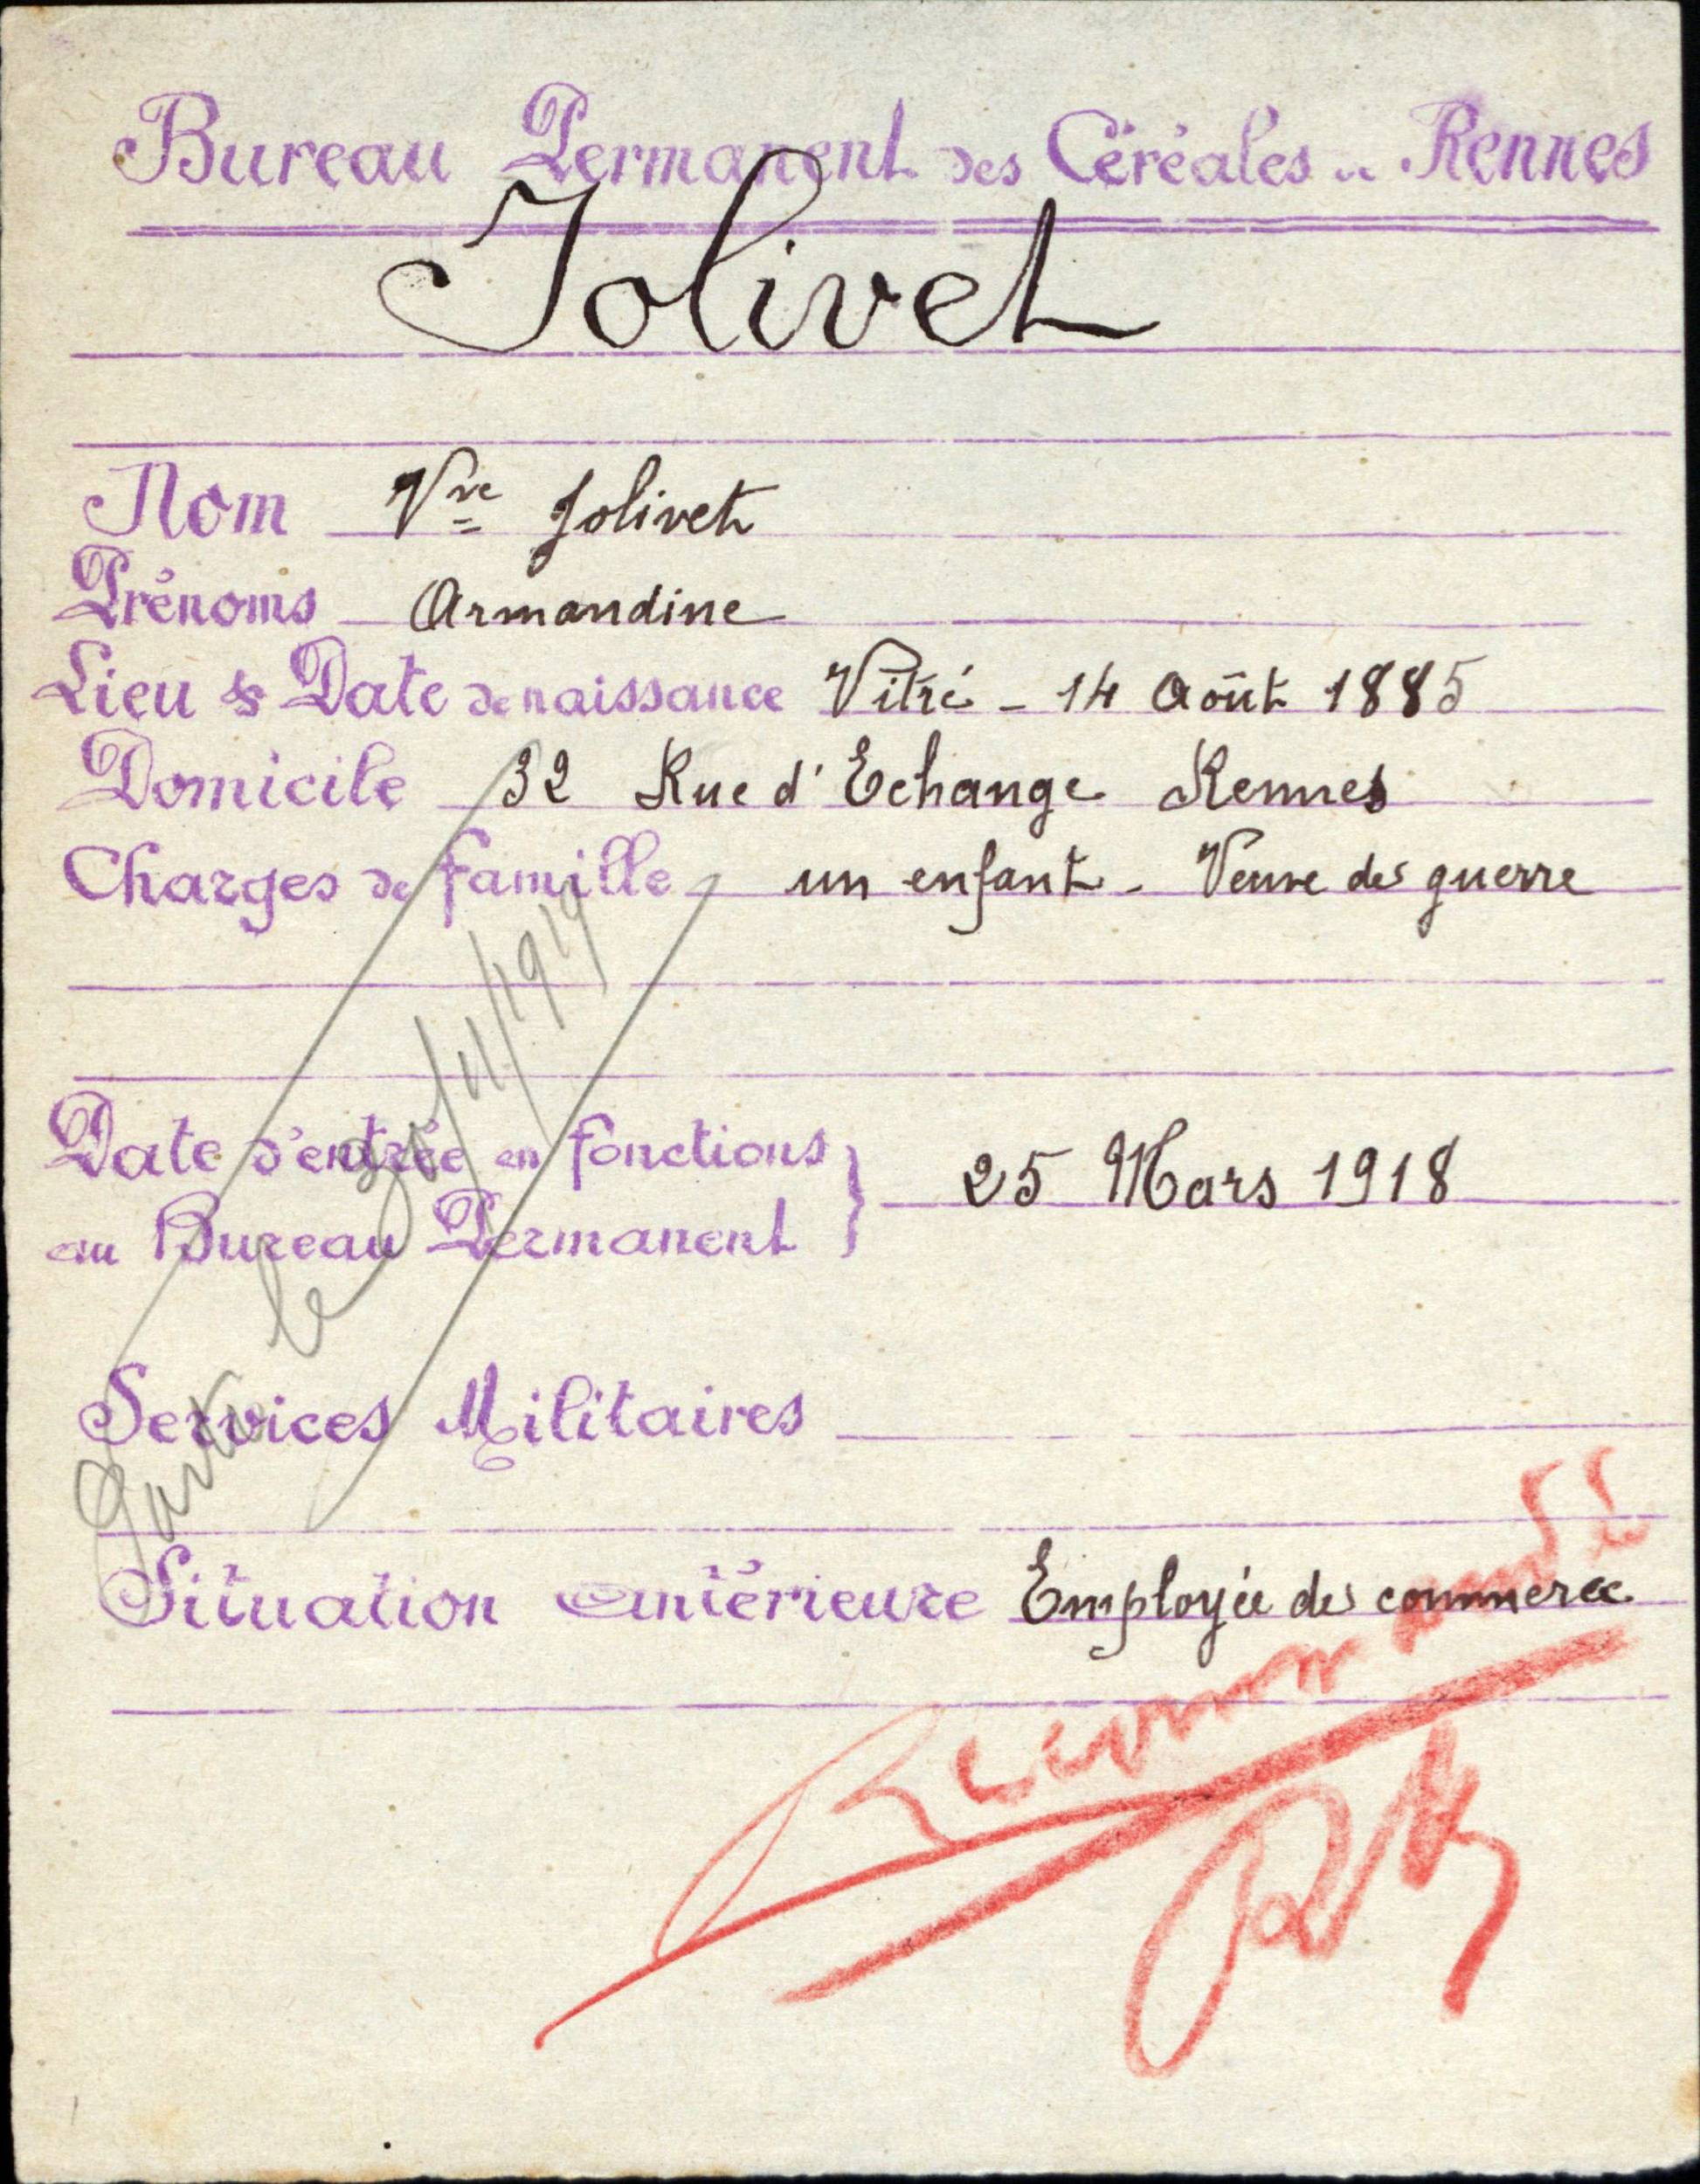 Bureau Permanent des Céréales de Rennes
Jolivet
Nom Vve Jolivet
Prénoms Armandine
Lieu & Date de naissance Vitré - 14 Août 1885
Domicile 32 Rue d'Echange Rennes
Charges de famille un enfant - Veuve de guerre
Date d'entrée en fonctions
au Bureau Permanent } 25 Mars 1918
Partie le /11/1919
Services Militaires
Situation antérieure Employée de commerce
Recommandée